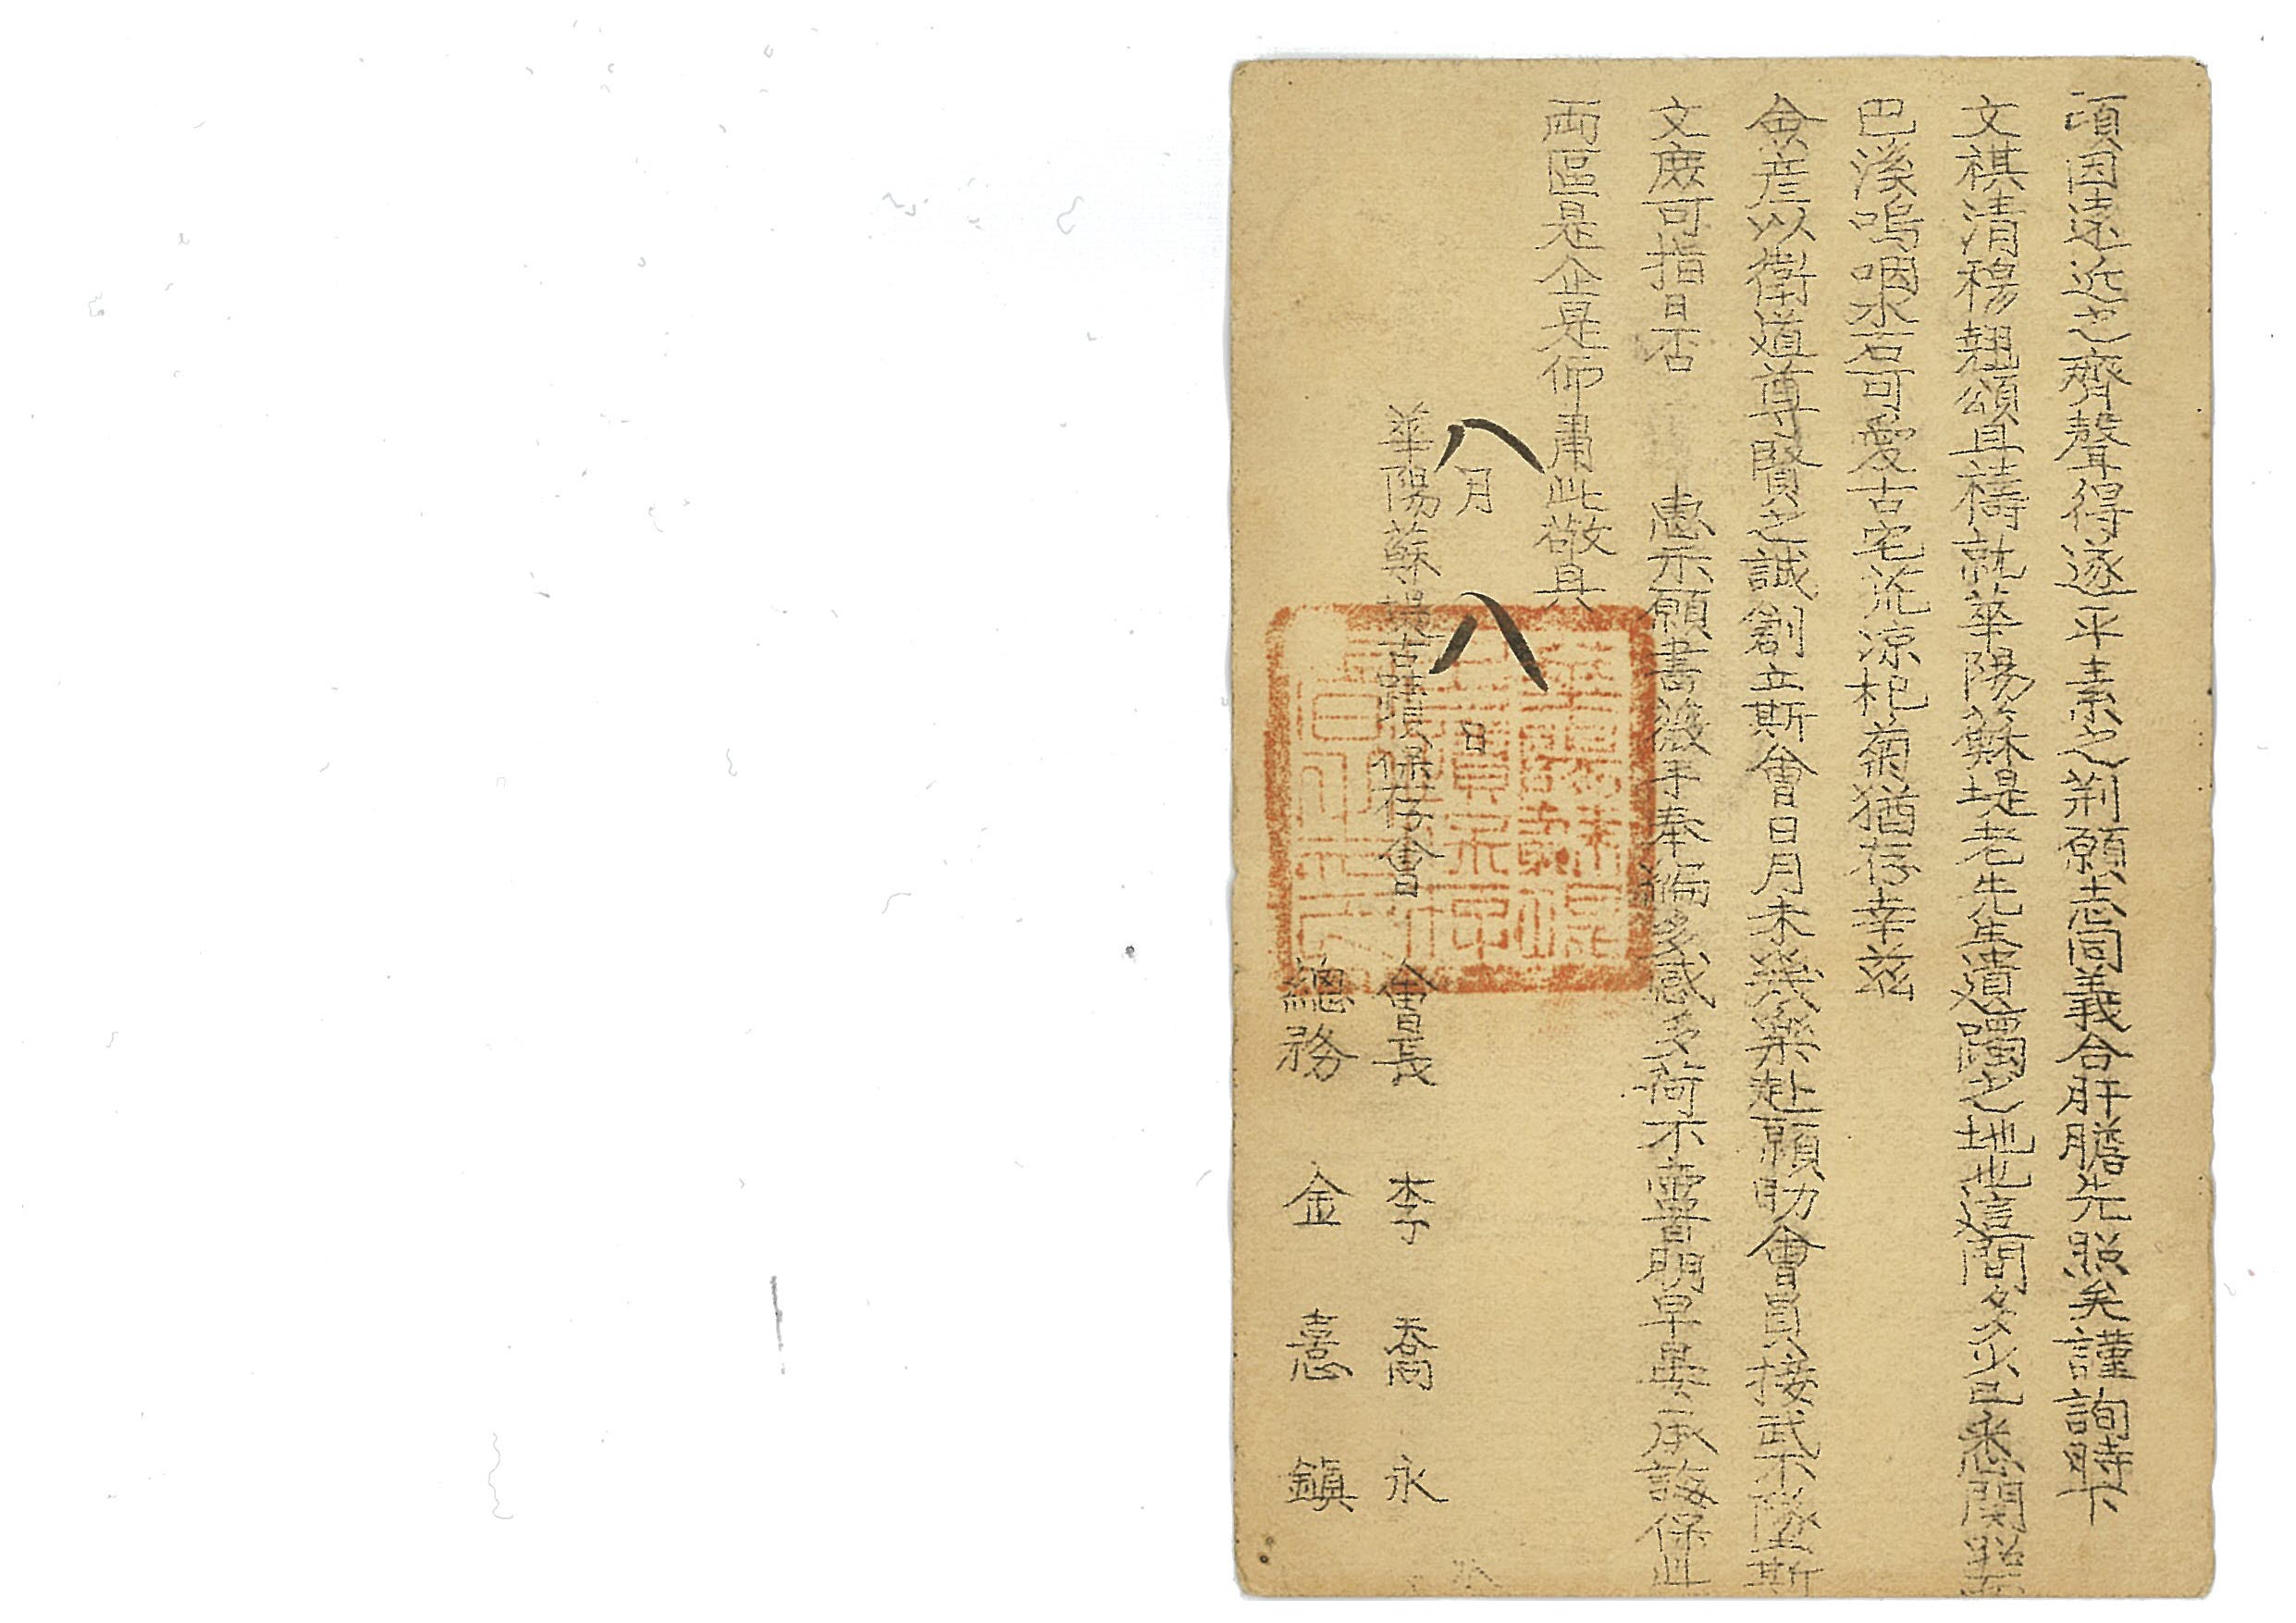 頃因遠近之齊聲得遂平素之荊願志同義合肝膽先照矣謹詢時下
文祺清穆翹頌且禱就華陽蘇堤老先生遺躅之地也信間多少已悉聞
巴溪嗚咽水石可愛古宅荒凉杞菊猶存幸茲
僉彦以衛道尊賢之誠創立斯會日月未幾樂赴願助會員接武不墜斯
文庶可指日 惠示願書後手奉編多感多荷不啻明早 承誨保此
両區是企是仰肅此敬具
八月 八日
華陽蘇堤古蹟保存會 會長 李喬永
總務 金憙鎭